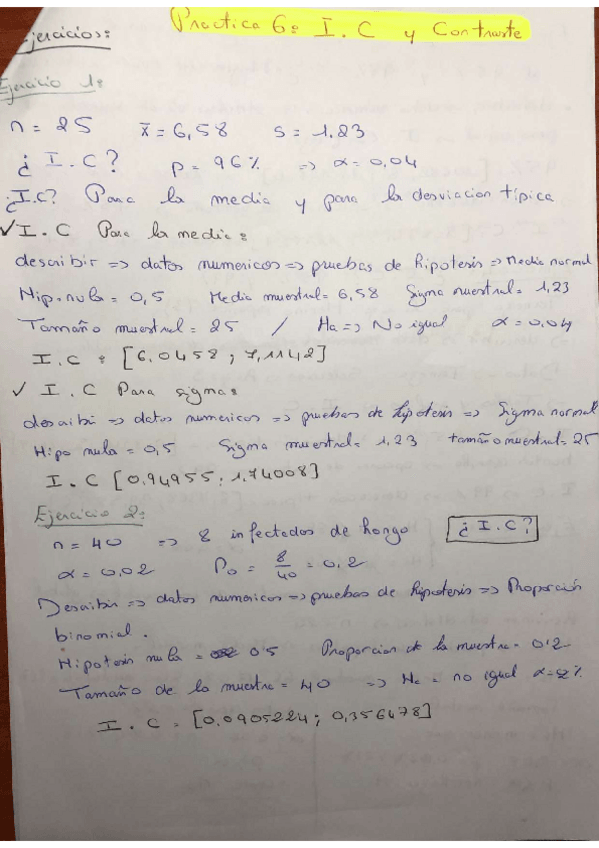 Practica 6: I.C y Contraste
Ejercicios:
Ejercicio 1:
n = 25 x̄ = 6,58 s = 1,23
¿I.C? p = 96% => α = 0,04
¿I.C? Para la media y para la desviacion típica
✓ I.C Para la media:
describir => datos numericos => pruebas de hipotesis => Media normal
Hip. nula = 0,5 Media muestral = 6,58 Sigma muestral = 1,23
Tamaño muestral = 25 / Ha => No igual α = 0,04
I.C : [6,0458 ; 7,1142]
✓ I.C Para sigma:
describir => datos numericos => pruebas de hipotesis => Sigma normal
Hipo nula = 0,5 Sigma muestral = 1,23 tamaño muestral = 25
I.C [0,94955 ; 1,74008]
Ejercicio 2:
n = 40 => 8 infectados de hongo ¿I.C?
α = 0,02 Po = 8/40 = 0,2
Describir => datos numericos => pruebas de hipotesis => Proporción
binomial.
Hipotesis nula = 0,5 Proporcion de la muestra = 0,2
Tamaño de la muestra = 40 => Ha = no igual α = 2%
I.C = [0,0905224 ; 0,356478]